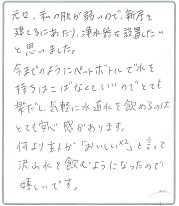 元々、私の肌が弱いので、新居を
建てるにあたり、浄水器を設置したい
と思いました。
今までのようにペットボトルで水を
持ちはこばなくていいのでとても
楽だし、気軽に水道水を飲めるのは
とても安心感があります。
何より主人が「おいしい!!」と言って
沢山水を飲むようになったので
嬉しいです。